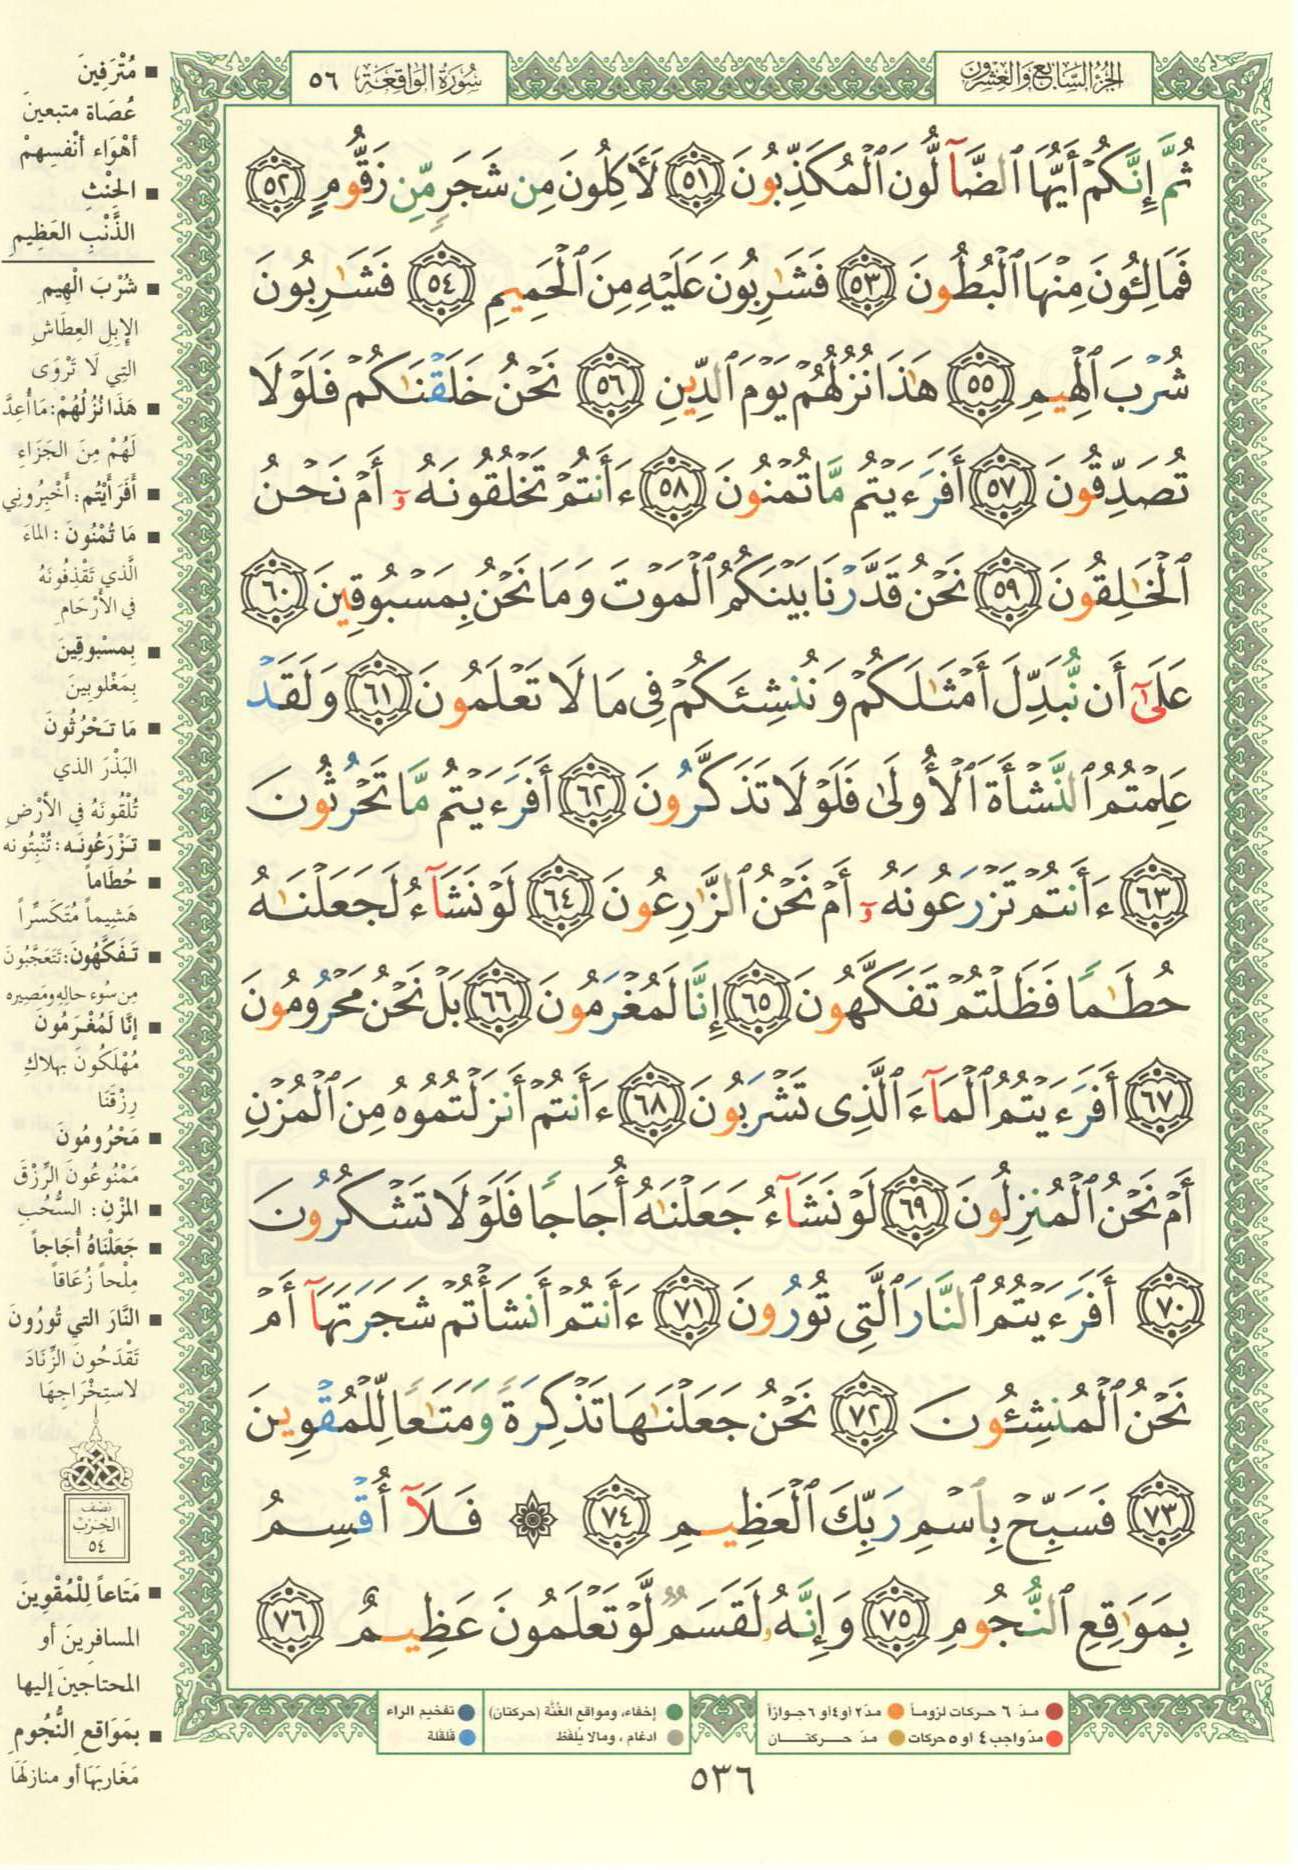 الجزء السابع والعشرون
سورة الواقعة ٥٦
ثُمَّ إِنَّكُمْ أَيُّهَا ٱلضَّآلُّونَ ٱلْمُكَذِّبُونَ ٥١ لَأٓكِلُونَ مِن شَجَرٍ مِّن زَقُّومٍ ٥٢
فَمَالِـُٔونَ مِنْهَا ٱلْبُطُونَ ٥٣ فَشَٰرِبُونَ عَلَيْهِ مِنَ ٱلْحَمِيمِ ٥٤ فَشَٰرِبُونَ
شُرْبَ ٱلْهِيمِ ٥٥ هَٰذَا نُزُلُهُمْ يَوْمَ ٱلدِّينِ ٥٦ نَحْنُ خَلَقْنَٰكُمْ فَلَوْلَا
تُصَدِّقُونَ ٥٧ أَفَرَءَيْتُم مَّا تُمْنُونَ ٥٨ ءَأَنتُمْ تَخْلُقُونَهُۥٓ أَمْ نَحْنُ
ٱلْخَٰلِقُونَ ٥٩ نَحْنُ قَدَّرْنَا بَيْنَكُمُ ٱلْمَوْتَ وَمَا نَحْنُ بِمَسْبُوقِينَ ٦٠
عَلَىٰٓ أَن نُّبَدِّلَ أَمْثَٰلَكُمْ وَنُنشِئَكُمْ فِى مَا لَا تَعْلَمُونَ ٦١ وَلَقَدْ
عَلِمْتُمُ ٱلنَّشْأَةَ ٱلْأُولَىٰ فَلَوْلَا تَذَكَّرُونَ ٦٢ أَفَرَءَيْتُم مَّا تَحْرُثُونَ
٦٣ ءَأَنتُمْ تَزْرَعُونَهُۥٓ أَمْ نَحْنُ ٱلزَّٰرِعُونَ ٦٤ لَوْ نَشَآءُ لَجَعَلْنَٰهُ
حُطَٰمًا فَظَلْتُمْ تَفَكَّهُونَ ٦٥ إِنَّا لَمُغْرَمُونَ ٦٦ بَلْ نَحْنُ مَحْرُومُونَ
٦٧ أَفَرَءَيْتُمُ ٱلْمَآءَ ٱلَّذِى تَشْرَبُونَ ٦٨ ءَأَنتُمْ أَنزَلْتُمُوهُ مِنَ ٱلْمُزْنِ
أَمْ نَحْنُ ٱلْمُنزِلُونَ ٦٩ لَوْ نَشَآءُ جَعَلْنَٰهُ أُجَاجًا فَلَوْلَا تَشْكُرُونَ
٧٠ أَفَرَءَيْتُمُ ٱلنَّارَ ٱلَّتِى تُورُونَ ٧١ ءَأَنتُمْ أَنشَأْتُمْ شَجَرَتَهَآ أَمْ
نَحْنُ ٱلْمُنشِـُٔونَ ٧٢ نَحْنُ جَعَلْنَٰهَا تَذْكِرَةً وَمَتَٰعًا لِّلْمُقْوِينَ
٧٣ فَسَبِّحْ بِٱسْمِ رَبِّكَ ٱلْعَظِيمِ ٧٤ ۞ فَلَآ أُقْسِمُ
بِمَوَٰقِعِ ٱلنُّجُومِ ٧٥ وَإِنَّهُۥ لَقَسَمٌ لَّوْ تَعْلَمُونَ عَظِيمٌ ٧٦
■ مُتْرَفِينَ
عُصَاة متبعينَ
أهْوَاء أنْفسِهِمْ
■ الحِنْثِ
الذَّنْبِ العَظِيمِ
■ شُرْبَ الْهِيمِ
الإبِلِ العِطَاشِ
التِي لَا تَرْوَى
■ هَذَا نُزُلُهُمْ: مَا أُعِدَّ
لَهُمْ مِنَ الجَزَاءِ
■ أَفَرَأَيْتُم: أَخْبِرُونِي
■ مَا تُمْنُونَ: الماءَ
الَّذي تَقْذِفُونَهُ
في الأَرْحَامِ
■ بِمسْبوقِينَ
بِمَغْلوبِينَ
■ مَا تَحْرُثُونَ
البَذْرَ الذي
تُلْقُونَهُ في الأرْضِ
■ تَزْرَعُونَه: تُنْبِتُونه
■ حُطَاماً
هَشِيماً مُتَكَسِّراً
■ تَفَكَّهُونَ: تَتَعَجَّبُونَ
مِن سُوءِ حالِهِ ومَصِيرِه
■ إنَّا لَمُغْرَمُونَ
مُهْلَكُونَ بهلاكِ
رِزْقِنَا
■ مَحْرُومُونَ
مَمْنُوعُونَ الرِّزْقَ
■ المُزْنِ: السُّحُبِ
■ جَعَلْنَاهُ أُجَاجاً
مِلْحاً زُعَاقاً
■ النَّارَ التِي تُورُونَ
تَقْدَحُونَ الزِّنَادَ
لاسْتِخْرَاجِهَا
نصف
الحزب
٥٤
■ مَتَاعاً لِلْمُقْوِينَ
المسافرِينَ أو
المحتاجينَ إليها
■ بمَوَاقعِ النُّجُومِ
مَغَاربَهَا أو منازلَهَا
مدّ ٦ حركات لزوماً مدّ ٢ أو ٤ أو ٦ جوازاً إخفاء، ومواقع الغُنَّة (حركتان) تفخيم الراء
مدّ واجب ٤ أو ٥ حركات مدّ حركتان ادغام، ومالا يُلفَظ قلقلة
٥٣٦